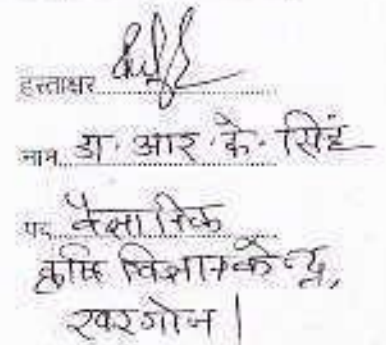 हस्ताक्षर
नाम डा. आर. के. सिंह
पद वैज्ञानिक
कृषि विज्ञान केन्द्र,
खरगोन।